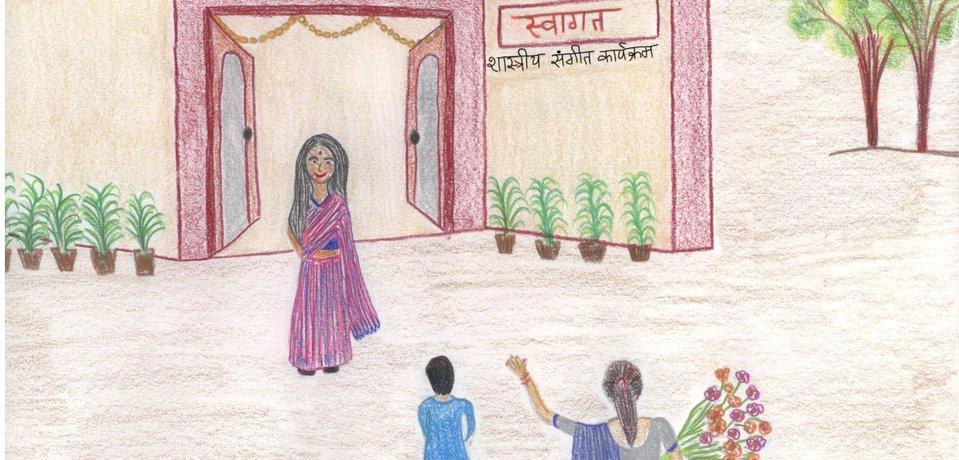 स्वागत
शास्त्रीय संगीत कार्यक्रम